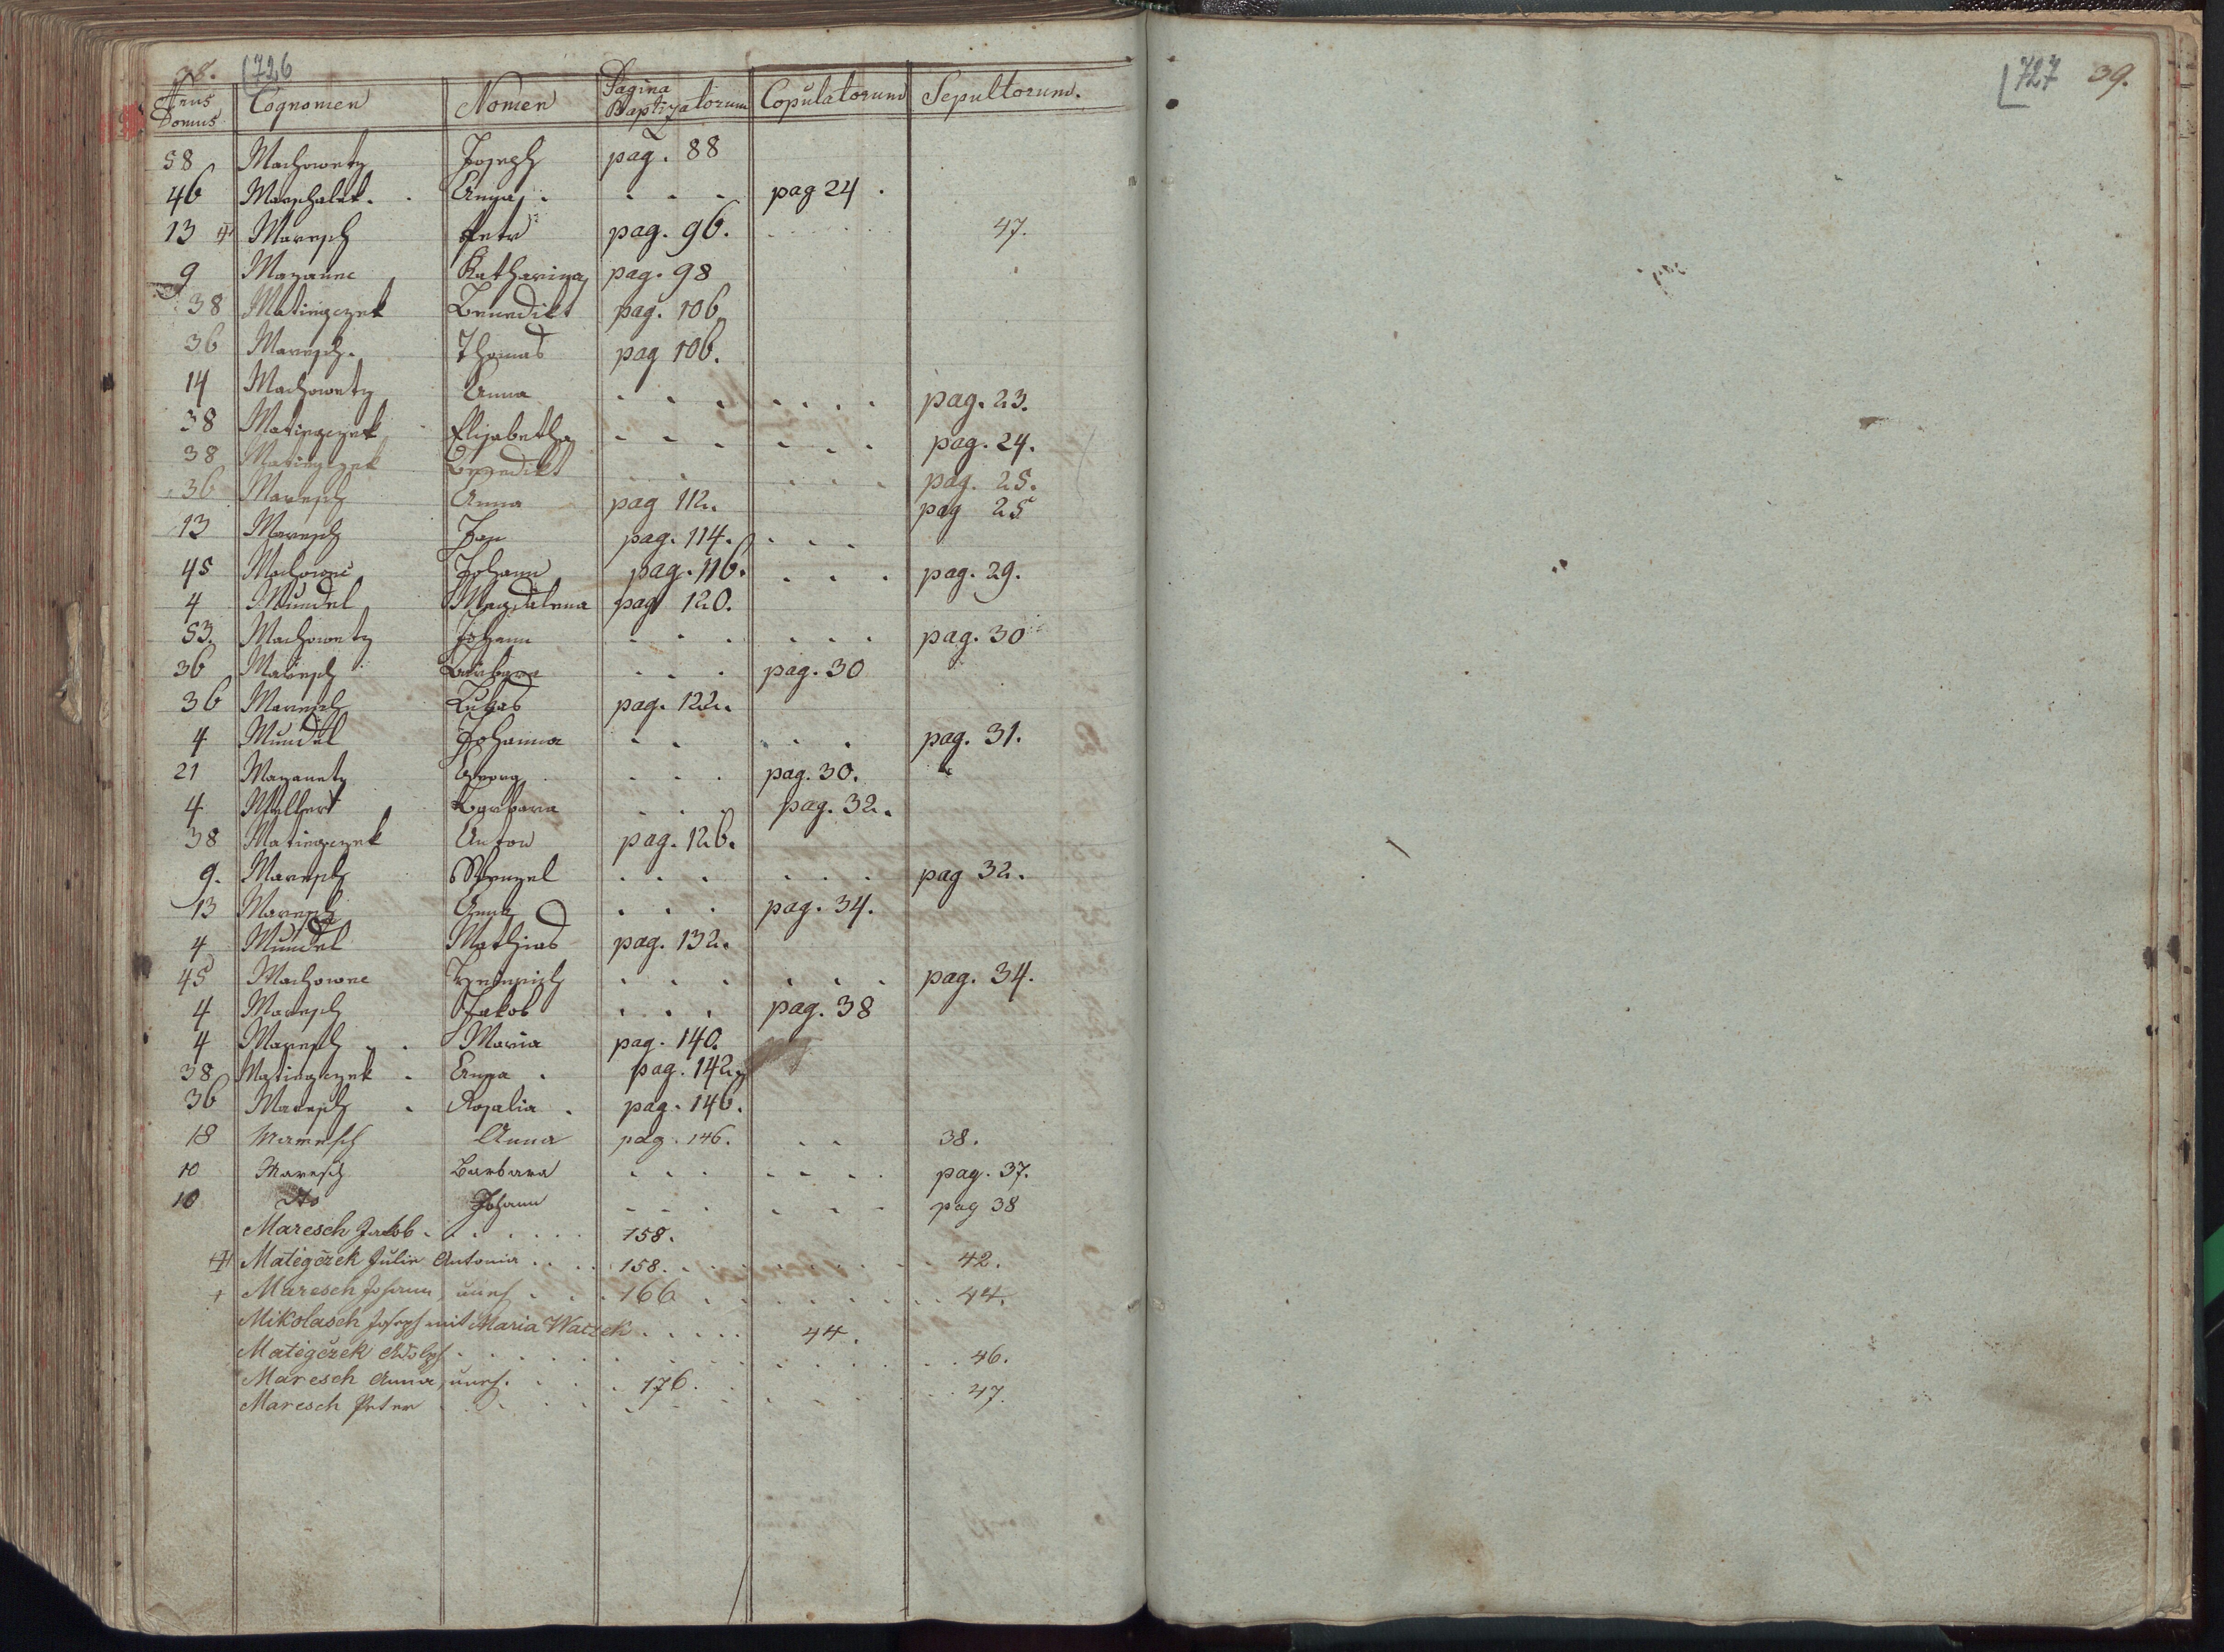 38. 726
Nrus Domus Cognomen Nomen Pagina Baptizatorum Copulatorum Sepultorum.
58 Machowetz Joseph pag. 88
46 Marschalek. Anna. pag 24.
13 Maresch Petr pag. 96. 47.
9 Mazanec Katharina pag. 98
38 Matiegczek Benedikt pag. 106
36 Maresch. Thomas pag 106.
14 Machowetz Anna pag. 23.
38 Matiegczek Elisabetha pag. 24.
38 Matiegczek Benedikt pag. 25.
36 Maresch Anna pag 112. pag 25
13 Maresch Jan pag. 114.
45 Machowec Johann pag. 116. pag. 29.
4 Mundel Magdalena pag 120.
53. Machowetz Johann pag. 30
36 Maresch Barbara pag. 30
36 Maresch Lukas pag. 122.
4 Mundel Johanna pag. 31.
21 Mazanetz Georg pag. 30.
4 Barbara pag. 32.
38 Matiegczek Anton pag. 126.
9. Maresch Wenzel pag 32.
13 Maresch Anna pag. 34.
4 Mundel Mathias pag. 132.
45 Machowec Heinrich pag. 34.
4 Maresch Jakob pag. 38
4 Maresch Maria pag. 140.
38 Matiegczek Anna pag. 142
36 Maresch Rosalia. pag. 146.
18 Maresch Anna pag. 146. 38.
10 Maresch Barbara pag. 37.
10 dto Johann pag 38
Maresch Jakob. 158.
Mategczek Julie Antonia 158. 42.
Maresch Johann, uneh. 166 44.
Mikolasch Joseph mit Maria Waczek 44.
Mategczek Adolph 46.
Maresch Anna, uneh. 176. 47.
Maresch Peter
727 39.